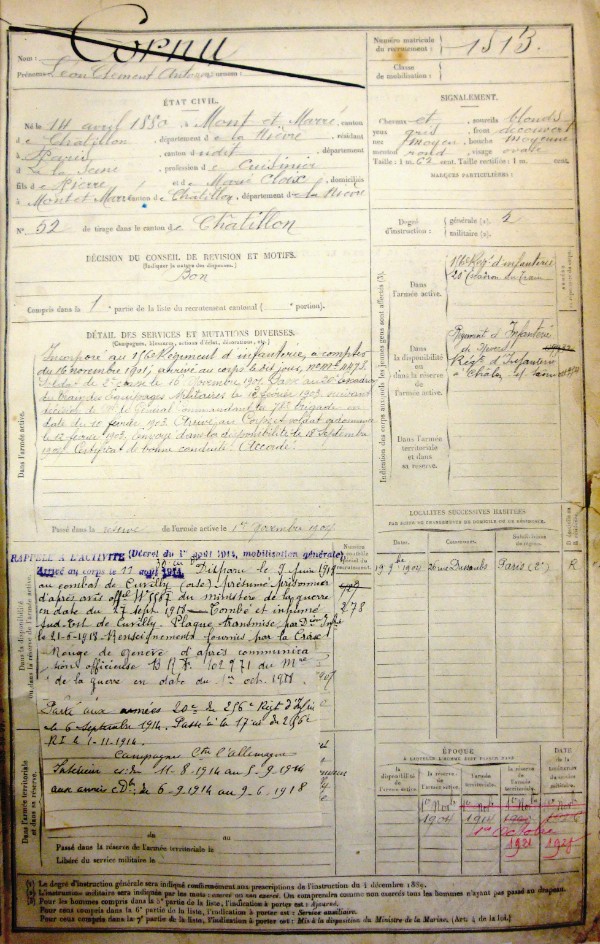 Nom : Cornu
Prénoms : Léon Clément Antoine surnom :
Numéro matricule du recrutement : 1813.
Classe de mobilisation :
ÉTAT CIVIL.
Né le 14 avril 1880 à Mont et Marré, canton
de Chatillon, département de la Nièvre, résidant
à Paris, canton dudit, département
de la Seine, profession de Cuisinier
fils de Pierre et de Marie Cloix, domiciliés
à Mont et Marré canton de Chatillon, département de la Nièvre
N° 52 de tirage dans le canton de Chatillon
SIGNALEMENT.
Cheveux et sourcils blonds
yeux gris, front découvert
nez moyen, bouche moyenne
menton rond visage ovale
Taille : 1 m. 63 cent. Taille rectifiée : 1 m. cent.
MARQUES PARTICULIÈRES :
Degré d'instruction : générale (1). 3
militaire (2).
DÉCISION DU CONSEIL DE RÉVISION ET MOTIFS.
(Indiquer la nature des dispenses.)
Bon
Compris dans la 1e partie de la liste du recrutement cantonal ( e portion).
Indication des corps auxquels les jeunes gens sont affectés (3).
Dans l'armée active.
176e Rég. d'infanterie
20e Escadron du Train
Dans la disponibilité ou dans la réserve de l'armée active.
Régiment d'Infanterie
de Nevers
Régt d'Infanterie
Dans l'armée territoriale et dans sa réserve.
DÉTAIL DES SERVICES ET MUTATIONS DIVERSES.
(Campagnes, blessures, actions d'éclat, décorations, etc.)
Dans l'armée active.
Incorporé au 176e Régiment d'infanterie, à compter
du 16 novembre 1901, arrivé au corps le dit jour,
Soldat de 2e classe le 16 novembre 1901. Passé au 20e Escadron
du train des Equipages Militaires le 12 février 1903, suivant
décision de Mr le Général commandant la brigade en
date du 11 février 1903. Arrivé au Corps et soldat
le 12 février 1903, envoyé dans la disponibilité le 18 Septembre
1904. Certificat de bonne conduite : Accordé.
Passé dans la réserve de l'armée active le 1er novembre 1904
LOCALITÉS SUCCESSIVES HABITÉES
PAR SUITE DE CHANGEMENTS DE DOMICILE OU DE RÉSIDENCE.
Dates. Communes. Subdivisions de région.
1904 Paris (2e) R
Dans la disponibilité ou dans la réserve de l'armée active.
RAPPELÉ A L'ACTIVITÉ (Décret du 1er août 1914, mobilisation générale)
Arrivé au corps le 11 août 1914. Disparu le 9 juin 1918
au combat de Cuvilly (oise) présumé prisonnier
d'après avis offel du ministère de la guerre
en date du 27 sept. 1918 - Tombé et inhumé
Sud-Est de Cuvilly - Plaque transmise par
le 21-6-1918 - Renseignements fournis par la Croix
Rouge de Genève d'après communica
tion officieuse B.R.F. 102971 du Mre
de la guerre en date du 1er oct. 1918.
Parti aux armées 20e du 256e Regt d'Infie
le 6 Septembre 1914. Passé à la 17e du 256e
R.I. le 1-11-1914.
Campagnes Ctre l'Allemagne
Intérieur du 11-8-1914 au 5-9-1914
aux armées du 6-9-1914 au 9-6-1918
278
Dans l'armée territoriale et dans sa réserve.
du au
Passé dans la réserve de l'armée territoriale le
Libéré du service militaire le
ÉPOQUE
À LAQUELLE L'HOMME DOIT PASSER DANS
la disponibilité de l'armée active.
la réserve de l'armée active.
l'armée territoriale.
la réserve de l'armée territoriale.
DATE DE LA libération du service militaire.
1er Nov. 1904
1er Nov. 1914
1er octobre
1921 1928
(1) Le degré d'instruction générale sera indiqué conformément aux prescriptions de l'instruction du 4 décembre 1889.
(2) L'instruction militaire sera indiquée par les mots : exercé ou non exercé. On comprendra comme non exercés tous les hommes n'ayant pas passé au drapeau.
(3) Pour les hommes compris dans la 5e partie de la liste, l'indication à porter est : Ajourné.
Pour ceux compris dans la 6e partie de la liste, l'indication à porter est : Service auxiliaire.
Pour ceux compris dans la 7e partie de la liste, l'indication à porter est : Mis à la disposition du Ministre de la Marine. (Art. 4 de la loi.)